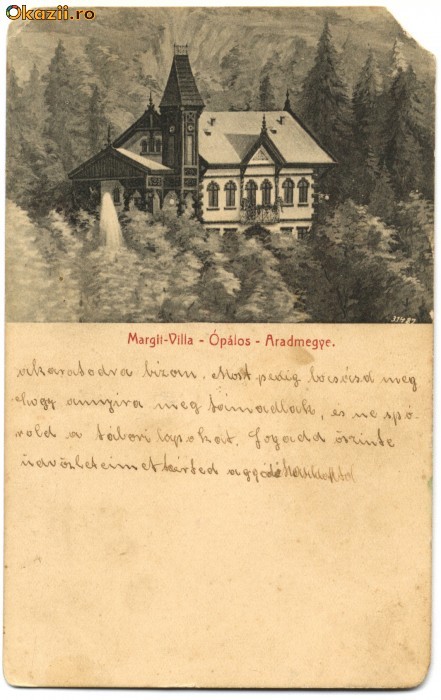 Okazii.ro
33487
Margit-Villa - Ópálos - Aradmegye.
akaratodra bizom. Most pedig bocsásd meg
hogy annyira meg támadlak, és ne spó
rold a tábori lapokat. Fogadd őszinte
üdvözleteimet érted aggódó